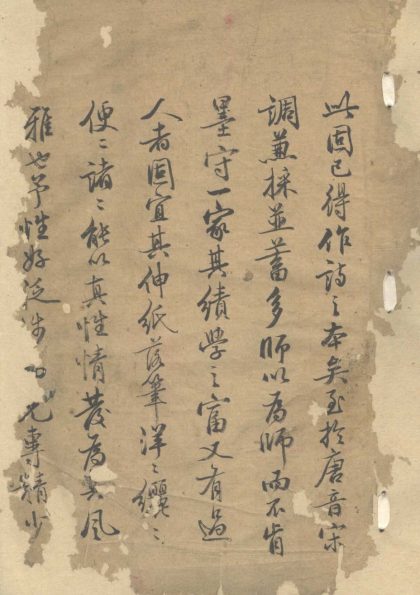 此固已得作詩之本矣至於唐音宋
調兼採並蓄多師以為師而不肯
墨守一家其績學之富又有過
人者固宜其伸紙落筆洋〻纚〻
便〻諸〻能以真性情發為其風
雅也予性好泛涉尤專精少